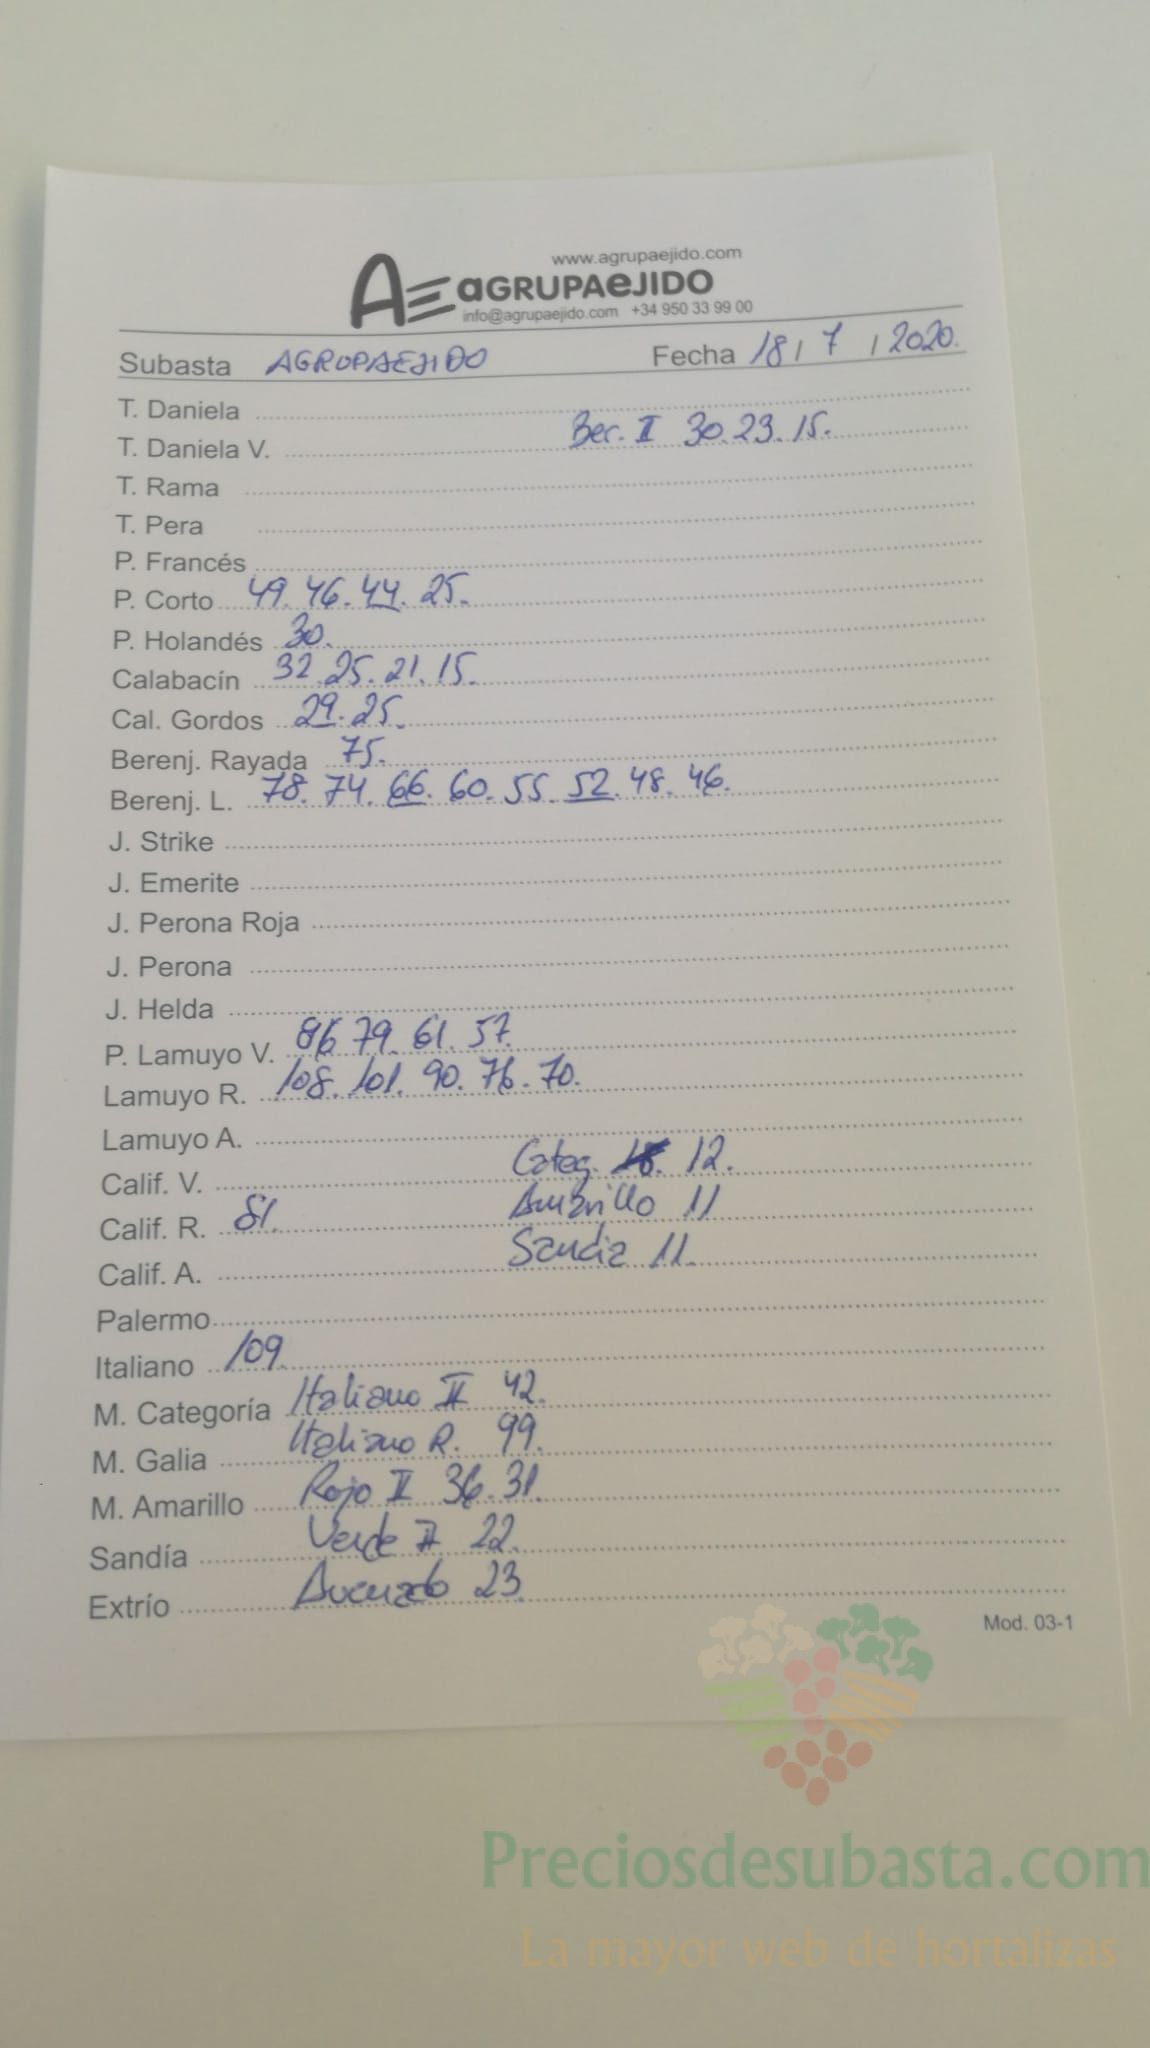 www.agrupaejido.com
AE aGRUPAeJIDO
info@agrupaejido.com +34 950 33 99 00
Subasta AGRUPAEJIDO Fecha 18 / 7 / 2020.
T. Daniela
T. Daniela V. Ber. II 30. 23. 15.
T. Rama
T. Pera
P. Francés
P. Corto 49. 46. 44. 25.
P. Holandés 30.
Calabacín 32. 25. 21. 15.
Cal. Gordos 29. 25.
Berenj. Rayada 75.
Berenj. L. 78. 74. 66. 60. 55. 52. 48. 46.
J. Strike
J. Emerite
J. Perona Roja
J. Perona
J. Helda
P. Lamuyo V. 86 79. 61. 57.
Lamuyo R. 108. 101. 90. 76. 70.
Lamuyo A.
Calif. V. Categ. 12.
Calif. R. 81. Amarillo 11
Calif. A. Sandia 11.
Palermo
Italiano 109.
M. Categoría Italiano II 42.
M. Galia Italiano R. 99.
M. Amarillo Rojo II 36. 31.
Sandía Verde II 22.
Extrío 23.
Mod. 03-1
Preciosdesubasta.com
La mayor web de hortalizas